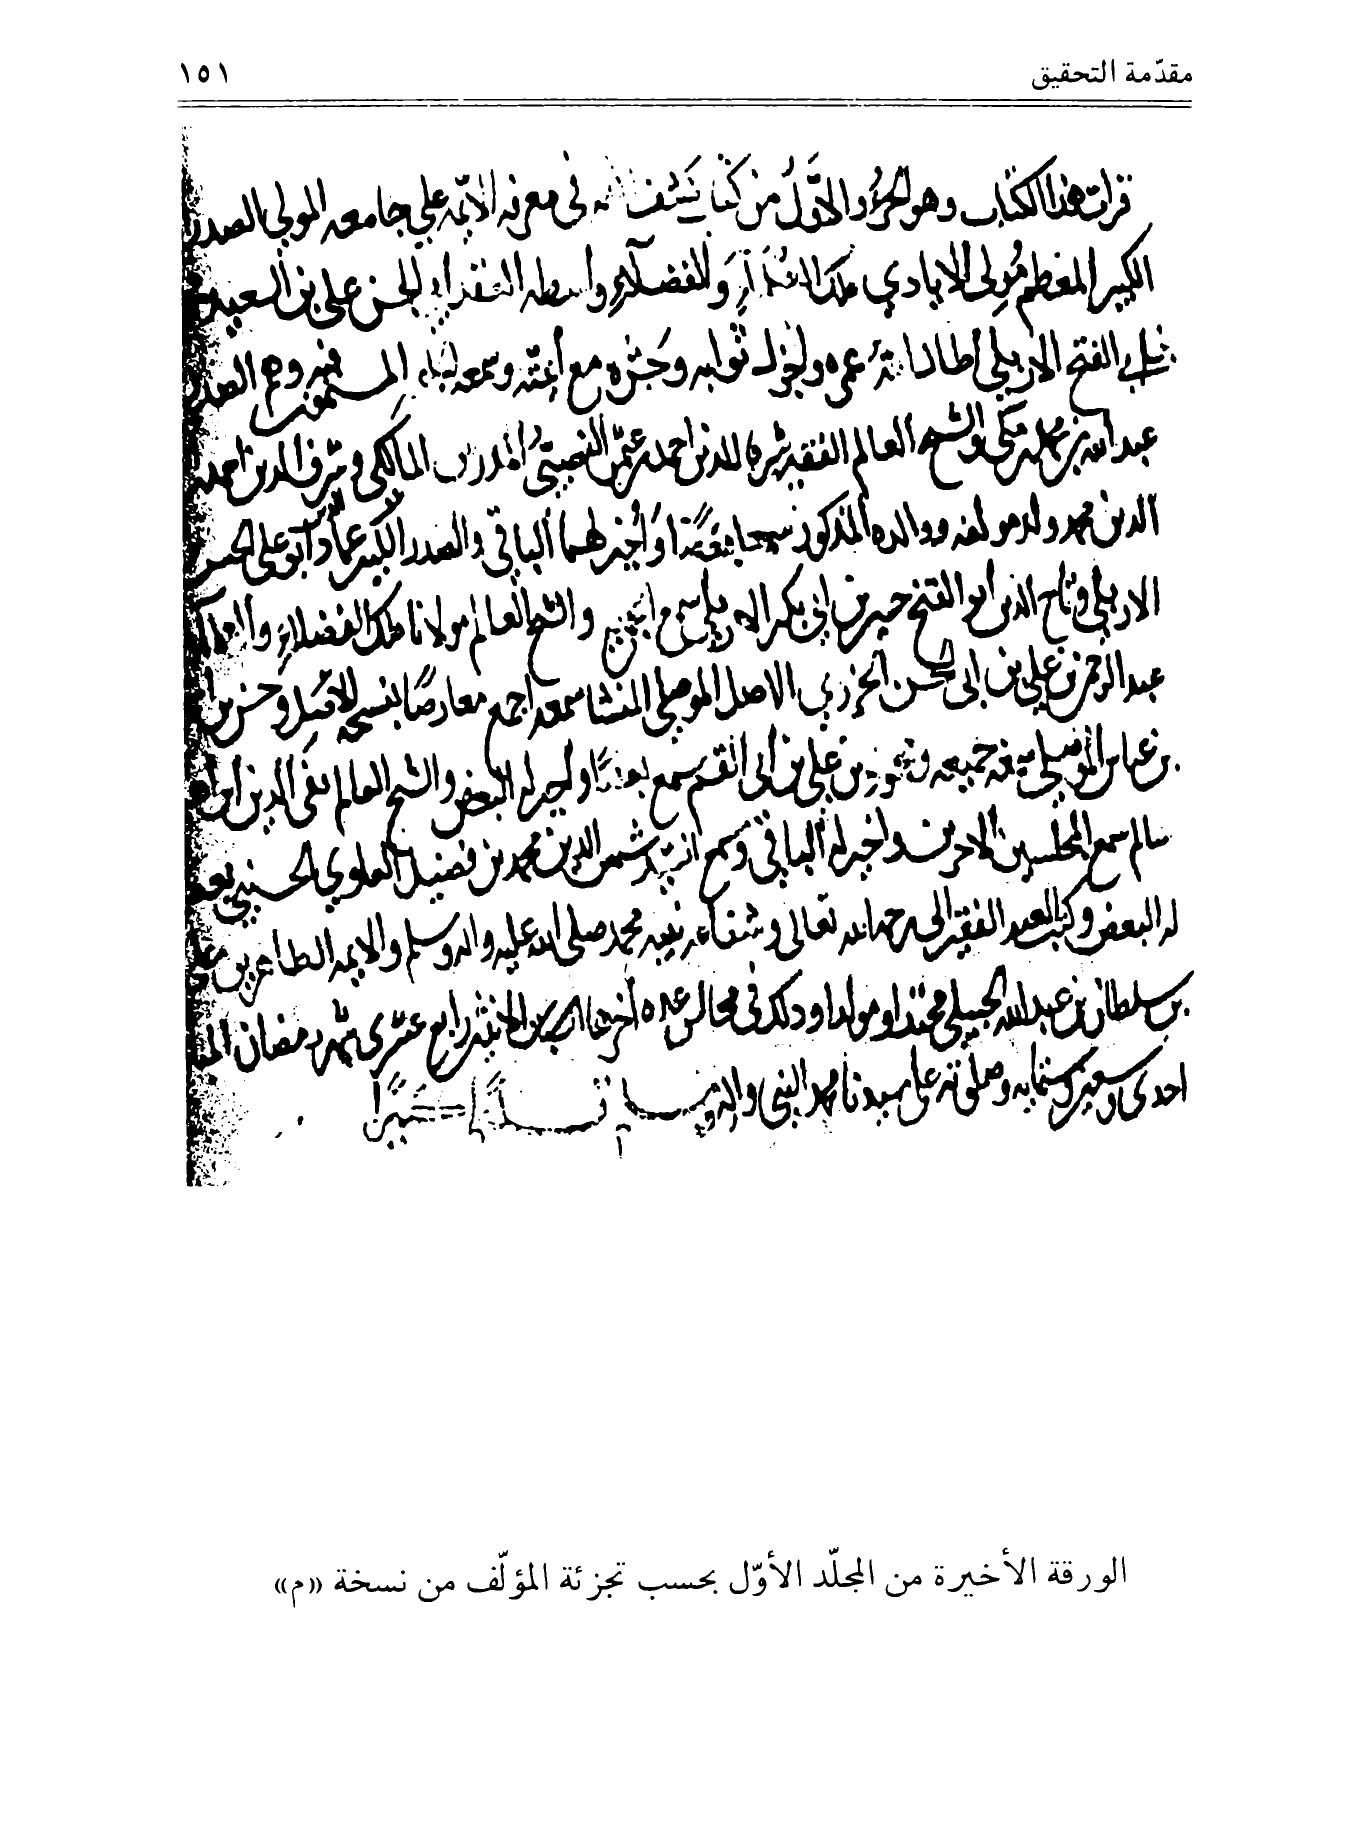 مقدّمة التحقيق
١٥١
قرات هذا الكتاب وهو الجزء الاوّل من كتاب كشف الغمه في معرفه الايمّه علي جامعه المولي الصدر
الكبير المعظم مُولي الايادي ملك العلماء والفضلاء واسطه العقد ابي الحسن علي بن السعيد
بن ابي الفتح الاربلي اطال الله عمره واجزل ثوابه وحشره مع ايمّته وسمعه الجماعه المسمون فيه وهم الصدر
عبد الله بن محمد بن مكي والشيخ العالم الفقيه شرف الدين احمد بن عثمن النصيبيُّ المدرس المالكي وشرف الدين احمد
الدين محمد ولد مولفه ووالده المذكور سمعا بعضًا واُجيز لهما الباقي والصدر الكبير عماد الدين ابو علي الحسن
الاربلي وتاج الدين ابو الفتح حسين بن ابي بكر الاربلي والشيخ العالم مولانا ملك الفضلاء والعلماء
عبد الرحمن بن علي بن ابي الحسن الجزري الاصل الموصلي المنشا سمعه اجمع معارضًا بنسخه الاصل وحسن بن
بن عباس الموصلي سمعه جميعه بن علي بن ابي القسم سمع بعضًا واجيز له البعض والشيخ العالم تقي الدين ابراهيم
سالم سمع المجلسين الاخرين واجيز له الباقي وسمع السيد شمس الدين محمد بن فضل العلوي الحسني بعضا
له البعض وكتب العبد الفقير الي رحمه الله تعالي وشفاعه نبيه محمد صلي الله عليه واله وسلم والايمه الطاهرين علي
بن سلطان بن عبد الله الحبيلي محتدا ومولدا وذلك في مجالس عده اخرها الاثنين رابع عشري شهر رمضان
احدي وسعين وستمايه وصلوته علي سيدنا محمد النبي واله وسلم تسليمًا كثيرًا
الورقة الأخيرة من المجلّد الأوّل بحسب تجزئة المؤلّف من نسخة «م»